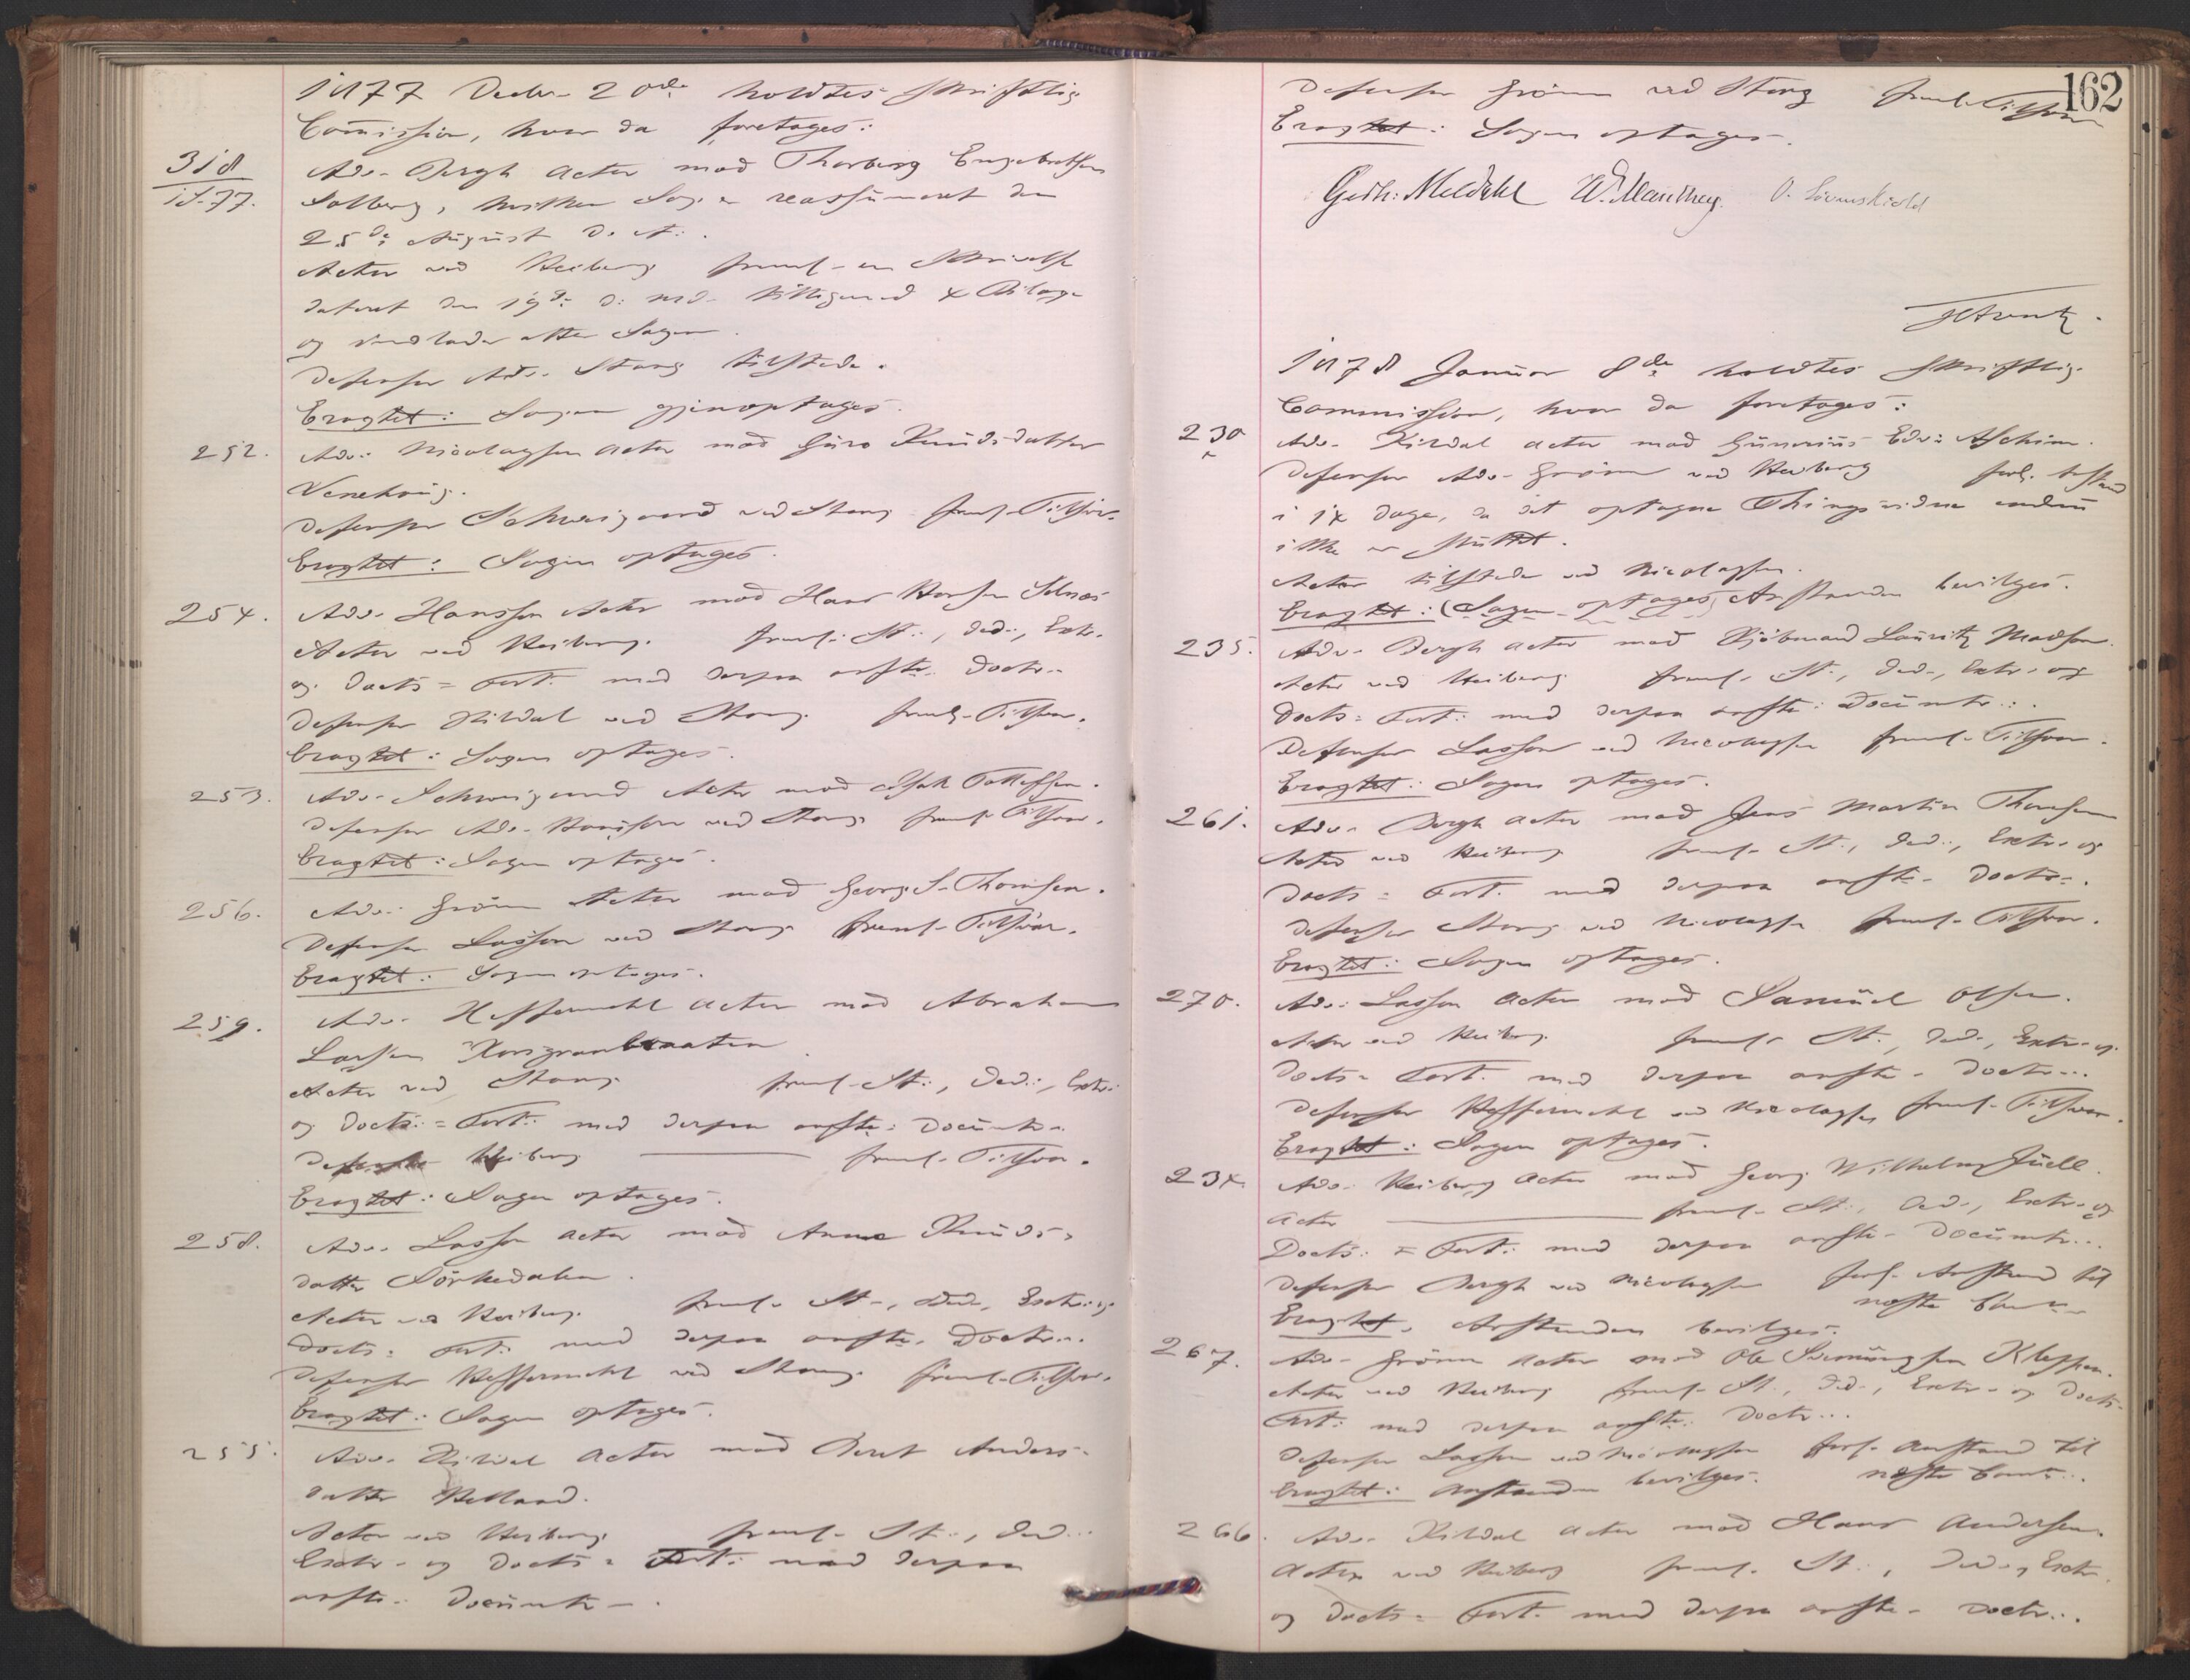 1877 Decbr. 20de holdtes skriftlig
Commission, hvor da foretages:
318
18-77.
Adv. Bergh Actor mod Thorberg Engebretsen
Solberg, hvilken Sag er reassumeret den
25de August d. A.
Actor ved Heiberg freml. en Skrivelse
dateret den 19de d. Md. tilligemed 4 Bilage
og indlader atter Sagen.
Defensor Adv. Stang tilstede.
Eragtet: Sagen gjenoptages.
252.
Adv. Nicolaysen Actor mod Guro Knudsdatter
Venehoug.
Defensor Schweigaard ved Stang freml. Tilsvar.
Eragtet: Sagen optages.
254.
Adv. Hansson Actor mod Hans Hansen
Actor ved Heiberg. freml. St., Ded., Extr.
og Docts = Fort. med derpaa anfte. Doctr.
Defensor Kildal ved Stang freml. Tilsvar.
Eragtet: Sagen optages.
253.
Adv. Schweigaard Actor mod Isak Tollefsen.
Defensor Adv. Hansson ved Stang freml. Tilsvar.
Eragtet: Sagen optages.
256.
Adv. Grönn Actor mod Georg S. Thomsen.
Defensor Lasson ved Stang freml. Tilsvar.
Eragtet: Sagen optages.
259.
Adv. Heffermehl Actor mod Abraham
Larsen Korsgranbraaten
Actor ved Stang freml. St., Ded., Extr.
og Docts. = Fort. med derpaa anfte. Documtr.
Defensor Heiberg freml. Tilsvar.
Eragtet: Sagen optages.
258.
Adv. Lasson Actor mod Anne Knuds-
datter Sörkedalen.
Actor ved Heiberg. freml. St., Ded., Extr. og
Docts. = Fort. med derpaa anfte. Doctr.
Defensor Heffermehl ved Stang freml. Tilsvar.
Eragtet: Sagen optages.
255.
Adv. Kildal Actor mod Beret Anders-
datter Helland.
Actor ved Heiberg freml. St., Ded.
Extr. og Docts = Fort. med derpaa
anfte. Documtr.
162
Defensor Grönn ved Stang freml. Tilsvar
Eragtet: Sagen optages.
Gerh: Meldahl W. Manthey. O. Lövenskiold
1878 Januar 8de holdtes skriftlig
Commission, hvor da foretages:
230
Adv. Kildal Actor mod Gunerius Edv. Aschim.
Defensor Adv. Grönn ved Heiberg forl. Anstand
i 14 Dage, da det optagne Thingsvidne endnu
ikke er sluttet.
Actor tilstede ved Nicolaysen.
Eragtet: (Sagen optages) Anstanden bevilges.
235.
Adv. Bergh Actor mod Kjöbmand Lauritz Madsen.
Actor ved Heiberg freml. St., Ded., Extr. og
Docts = Fort. med derpaa anfte. Documtr.
Defensor Lasson ved Nicolaysen freml. Tilsvar.
Eragtet: Sagen optages.
261.
Adv. Bergh Actor mod Jens Martin Thoresen
Actor ved Heiberg freml. St., Ded., Extr. og
Docts = Fort. med derpaa anfte. Doctr.
Defensor Stang ved Nicolaysen freml. Tilsvar.
Eragtet: Sagen optages.
270.
Adv. Lasson Actor mod Samuel Olsen.
Actor ved Heiberg freml. St., Ded., Extr. og
Docts = Fort. med derpaa anfte. Doctr...
Defensor Heffermehl ved Nicolaysen freml. Tilsvar.
Eragtet: Sagen optages.
234.
Adv. Heiberg Actor mod Georg Wilhelm Juell.
Actor freml. St., Ded., Extr. og
Docts. = Fort. med derpaa anfte. Documtr...
Defensor Bergh ved Nicolaysen forl. Anstand til
næste
Eragtet. Anstanden bevilges.
267.
Adv. Grönn Actor mod Ole Simensen Kleppen.
Actor ved Heiberg freml. St., Ded., Extr. og Docts-
Fort. med derpaa anfte. Doctr...
Defensor Lasson ved Nicolaysen forl. Anstand til
Eragtet: Anstanden bevilges. næste Comt...
266.
Adv. Kildal Actor mod Hans Andersen.
Actor ved Heiberg freml. St., Ded., Extr.
og Docts = Fort. med derpaa anfte. Doctr...